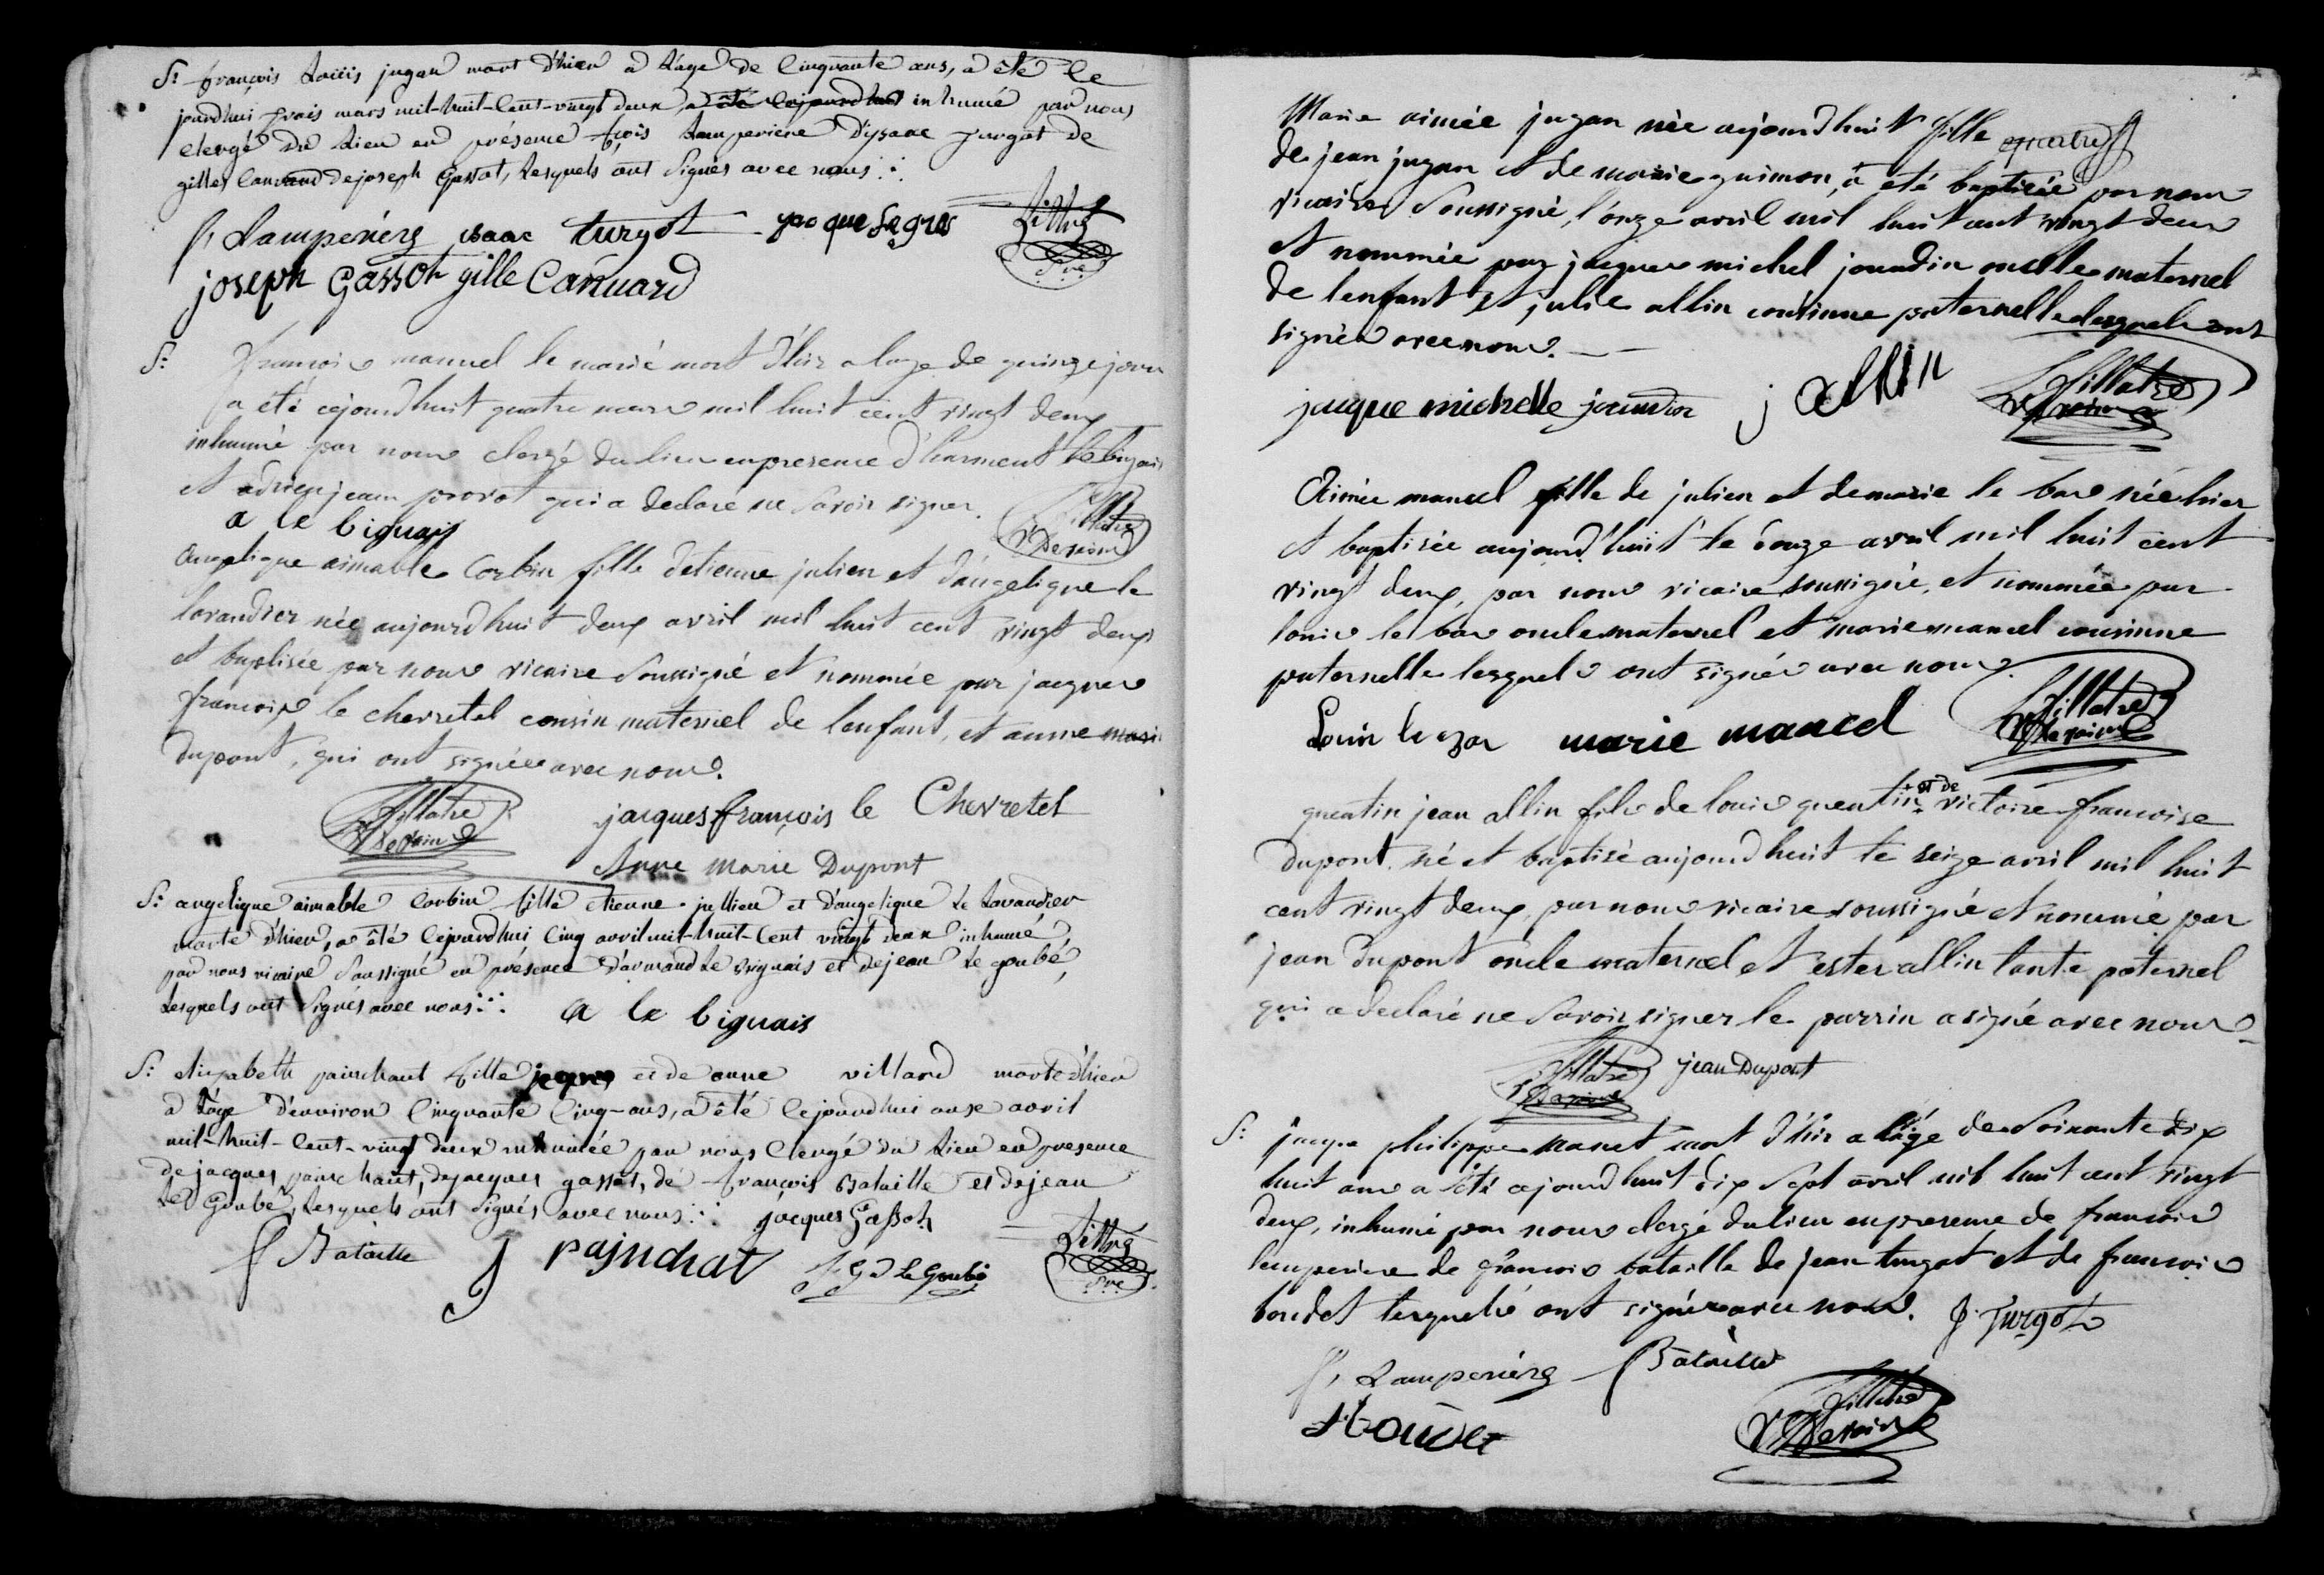 S: françois Loüis jugan mort d'hier à l'age de Cinquante ans, a été Ce
jourdhui trois mars mil-huit-Cent-vingt deux, a été Cejourdhui inhumé par nous
clergé du Lieu en présence fçois Lamperiere d'ysaac Turgot de
gilles Canuard de joseph Gassot, Lesquels ont Signés avec nous
f, Lamperiérs isaac turgot jacque Legros
joseph Gassot gille Canuard
S: françois manuel le marié mort d'hir a lage de quinze jours
a été cejourdhuit quatre mars mil huit cent vingt deux
inhumé par nous clergé du lieu en presence d'harment le biguais
et adrien jean provot qui a declaré ne Savoir signer.
a le biguais
Angelique aimable Corbin fille detienne julien et d'angelique le
lavandier née aujourdhuit deux avril mil huit cent vingt deux
et baptisée par nous vicaire Soussigné et nommée par jacques
françois le chevretel cousin maternel de lenfant, et anne marie
dupont, qui ont signée avec nous.
fillatre
Vre Desservi
jacques françois le Chevretel
Anne Marie Dupont
S: angelique aimable Corbin fille etienne jullien et d'angelique Le Lavandier
morte d'hier, a été Cejourdhui Cinq avril mil-huit-Cent vingt deux inhumé
par nous vicaire Soussigné en présence d'armand Le Biguais et de jean Le goubé,
Lesquels ont Signés avec nous
a le biguais
S: elizabeth painchaut fille jacques et de anne villard morte d'hier
à l'age d'environ Cinquante Cinq-ans, a été Cejourdhui onze avril
mil-huit-Cent-vingt deux inhumée par nous Clergé du Lieu en presence
de jacques painchaut, de jacques gassot, de françois Bataille et de jean
Le Goubé, Lesquels ont Signés avec nous jacques Gassot
f Bataille J pajnchat J G d Le Goubé
Marie aimée jugan née aujourdhuit fille
de jean jugan et de marie guimon, a été baptisée par nous
vicaire Soussigné, l'onze avril mil huit cent vingt deux
et nommée par jacques michel jourdin oncle maternel
de lenfant et julie allin cousinne paternelle lesquels ont
signée avec nous.
jacque michelle jourdin j allin
fillatre
Aimée mancel fille de julien et de marie le bas née hier
et baptisée aujourd'huit le douze avril mil huit cent
vingt deux, par nous vicaire soussigné, et nommée par
louis le bas oncle maternel et marie mancel cousinne
paternelle lesquels ont signée avec nous.
Louis le bas marie mancel
fillatre
quentin jean allin fils de louis quentin + et de victoire francoise
dupont né et baptisé aujourdhuit le seize avril mil huit
cent vingt deux, par nous vicaire soussigné et nommé par
jean dupont oncle maternel et ester allin tante paternel
qui a declaré ne Savoir signer le parrin a signé avec nous
fillatre jean Dupont
S: jacque philippe manet mort d'hir a l'âge de Soixante dix
huit ans a été cejourdhuit dix Sept avril mil huit cent vingt
deux, inhumé par nous clergé du lieu en presence de francois
lemperiere de françois bataille de jean turgot et de francois
boudet lesquels ont signée avec nous. J. Turgot
f, Lamperiérs f Bataille
fillatre